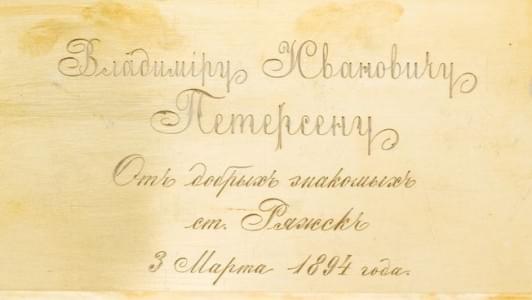 Владиміру Ивановичу
Петерсену
Отъ добрыхъ знакомыхъ
ст. Ряжскъ
3 Марта 1894 года.